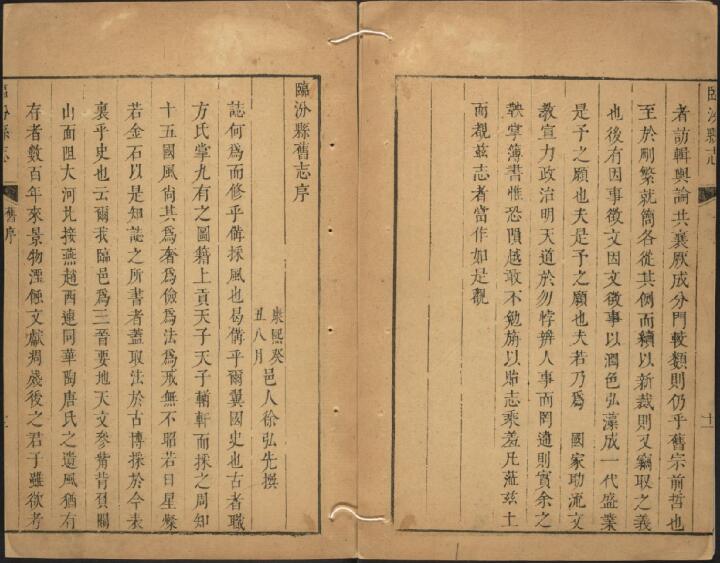 臨汾縣志
十一
者訪輯輿論共襄厥成分門較類則仍乎舊宗前哲也
至於刪繁就簡各從其例而續以新裁則又竊取之義
也後有因事徵文因文徵事以潤色弘藻成一代盛業
是予之願也夫是予之願也夫若乃爲 國家助流文
教宣力政治明天道於勿悖辨人事而罔遺則實余之
鞅掌簿書惟恐隕越敢不勉旃以貽志乘羞凡蒞茲土
而覩茲志者當作如是觀
臨汾縣舊志序
康熙癸
丑八月
邑人徐弘先撰
誌何爲而修乎備採風也曷備乎爾翼國史也古者職
方氏掌九有之圖籍上貢天子天子輶軒而採之周知
十五國風尚其爲奢爲儉爲法爲戒無不昭若日星燦
若金石以是知誌之所書者蓋取法於古博採於今表
裏乎史也云爾我臨邑爲三晉要地天文參觜背負關
山面阻大河北接燕趙西連同華陶唐氏之遺風猶有
存者數百年來景物湮傾文獻凋殘後之君子雖欲考
臨汾縣志
舊序